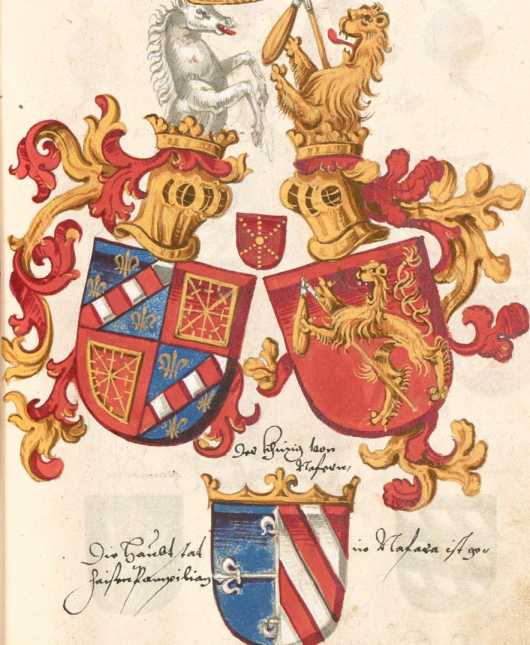 Der Khünig von
Nafern,
Die Haubt stat in Nafara ist ge
haissen Pampilian